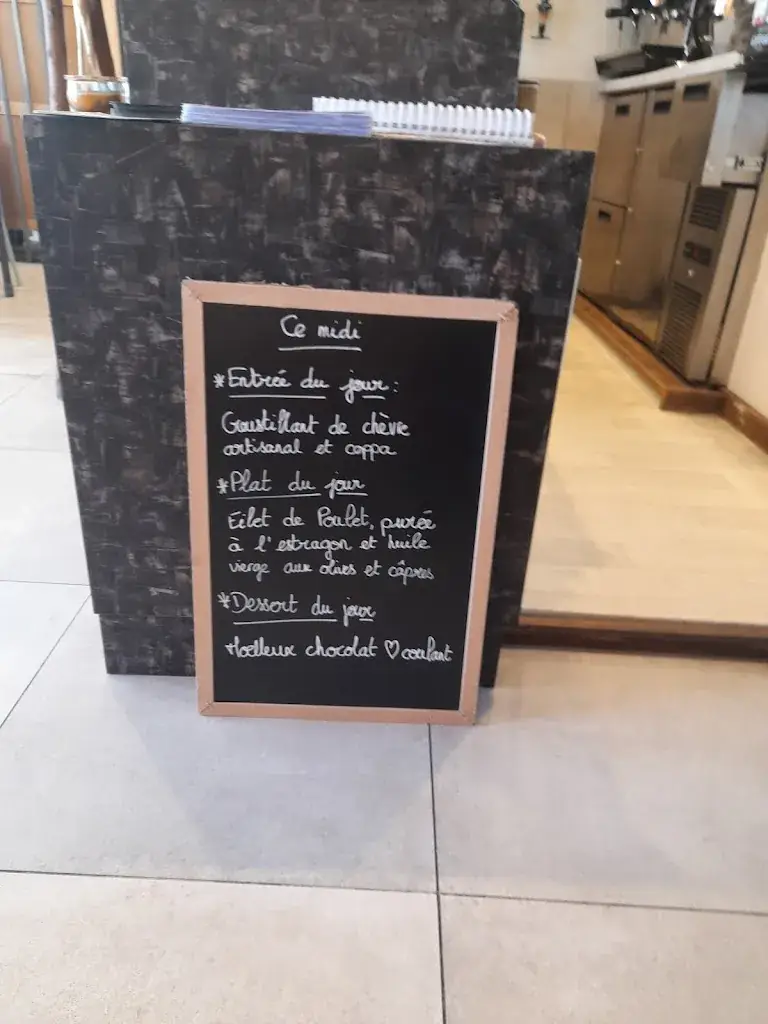 Ce midi
*Entrée du jour:
Croustillant de chèvre
artisanal et coppa
*Plat du jour
Filet de Poulet, purée
à l'estragon et huile
vierge aux olives et câpres
*Dessert du jour
Moelleux chocolat ♡ coulant